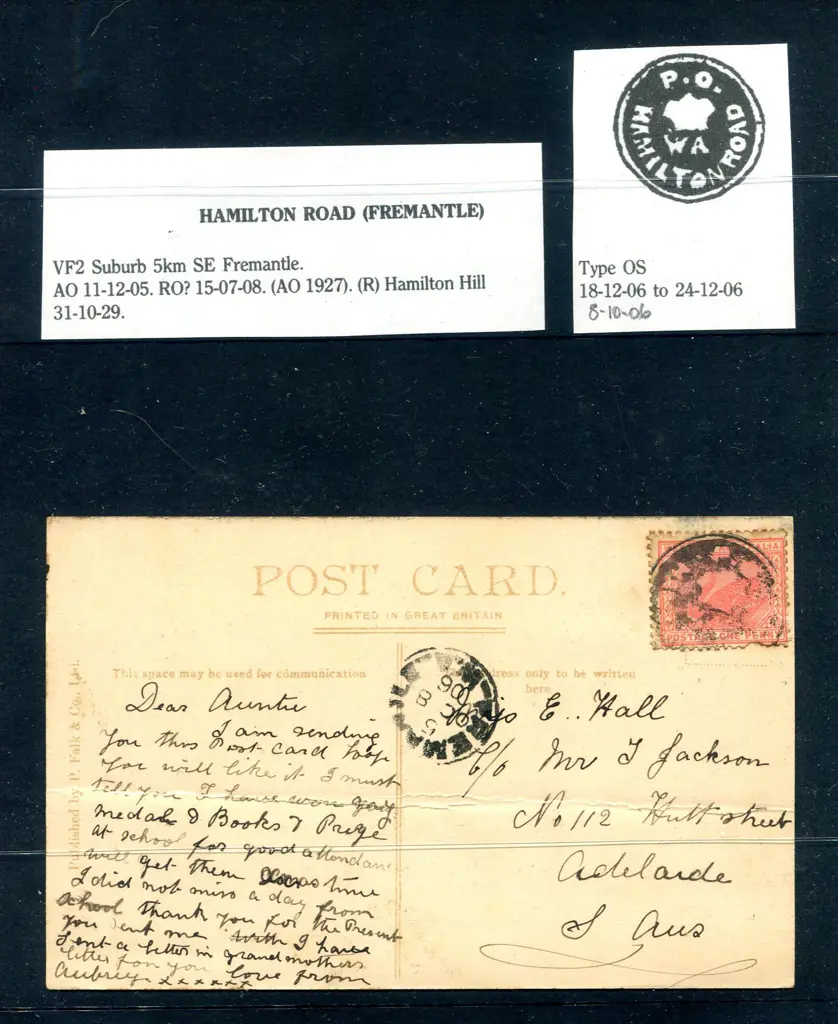 HAMILTON ROAD (FREMANTLE)
VF2 Suburb 5km SE Fremantle.
AO 11-12-05. RO? 15-07-08. (AO 1927). (R) Hamilton Hill
31-10-29.
P.O.
WA
HAMILTON ROAD
Type OS
18-12-06 to 24-12-06
8-10-06
POST CARD.
PRINTED IN GREAT BRITAIN
This space may be used for communication
dress only to be written
here
Published by P. Falk & Co., Ltd.
POSTAGE ONE PENNY
FREMA
OC 8
06
Dear Auntie
I am sending
you this Post card hope
you will like it I must
tell you I have won
medal & Books & Prize
at school for good attendan
will get them time
I did not miss a day from
school thank you for the Present
you sent me with I have
sent a letter in grandmothers
letter for you love from
Aubrey x x x x x x
Miss E.. Hall
C/o Mr J Jackson
No 112 Hutt street
Adelaide
S Aus